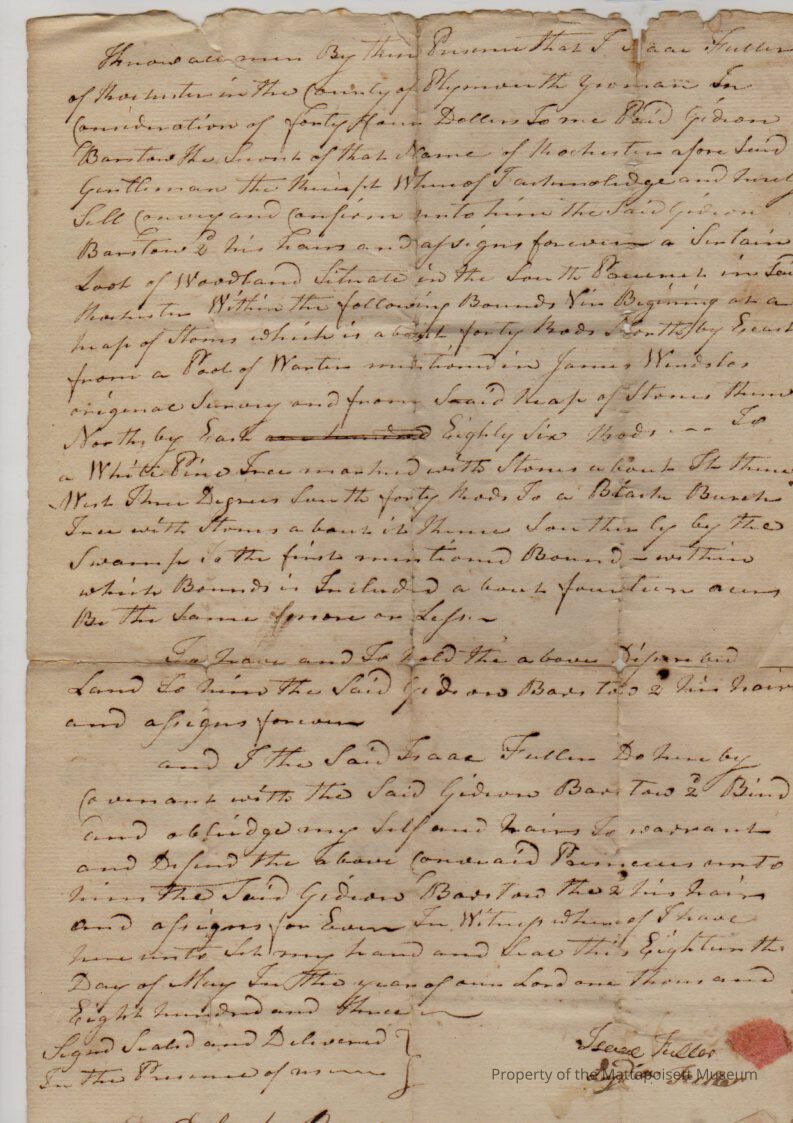 Know all men By these Presence that I Isaac Fuller
of Rochester in the County of Plymouth Yeoman In
Consideration of forty four Dollers To me Paid Gideon
Barstow the Second of that Name of Rochester afore Said
Gentleman the Receipt Whereof I acknowledge and hereby
Sell Convey and Confirm unto him the Said Gideon
Barstow 2d his hairs and assigns forever a Sertain
Loot of Woodland Situate in the South in Said
Rochester Within the following Bounds Viz Begining at a
heap of Stones which is about forty Rods North by East
from a Pool of Warter mentioned in James Winslos
original Survey and from Said heap of Stones thence
North by East one hundred Eighty Six Rods To
a White Pine Tree marked with Stones about It thence
West Three Degrees South forty Rods To a Black Burch
Tree with Stones about it thence Southerly by the
Swamp to the first mentioned Bound - within
which Bounds is Included about fourteen acers
Be the Same more or Less
To have and To hold the above
Land To him the Said Gideon Barstow 2d his hairs
and assigns forever
and I the Said Isaac Fuller Do here by
Covenant with the Said Gideon Barstow 2d Bind
and oblidge my Self and hairs To warrant
and Defend the above unto
him the Said Gideon Barstow the 2d his hairs
and assigns for Ever In Witness whereof I have
here unto Set my hand and Seal this Eighteenth
Day of May In the year of our Lord one thousand
Eight hundred and three
Signd Seald and Delivered
In the Presence of
Isaac Fuller
Property of the Mattapoisett Museum